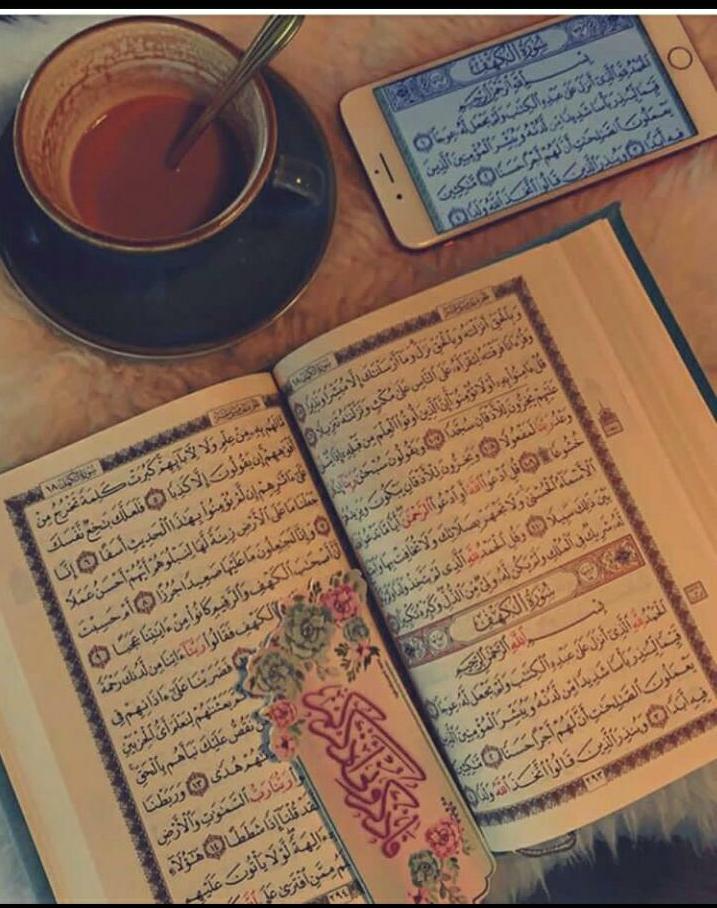 سورة الكهف
بسم الله الرحمن الرحيم
الحمد لله الذي أنزل على عبده الكتب ولم يجعل له عوجا ١
قيما لينذر بأسا شديدا من لدنه ويبشر المؤمنين الذين
يعملون الصلحت أن لهم أجرا حسنا ٢ مكثين
فيه أبدا ٣ وينذر الذين قالوا اتخذ الله ولدا ٤
وبالحق أنزلنه وبالحق نزل وما أرسلنك إلا مبشرا ونذيرا
وقرءانا فرقنه لتقرأه على الناس على مكث ونزلنه تنزيلا
قل ءامنوا به أو لا تؤمنوا إن الذين أوتوا العلم من قبله إذا يتلى
عليهم يخرون للأذقان سجدا ويقولون سبحن ربنا
وعد ربنا لمفعولا ويخرون للأذقان يبكون ويزيدهم
خشوعا قل ادعوا الله أو ادعوا الرحمن أيا ما تدعوا
الأسماء الحسنى ولا تجهر بصلاتك ولا تخافت بها
بين ذلك سبيلا وقل الحمد لله الذي لم يتخذ ولدا
له شريك في الملك ولم يكن له ولي من الذل وكبره تكبيرا
سورة الكهف
بسم الله الرحمن الرحيم
الحمد لله الذي أنزل على عبده الكتب ولم يجعل له عوجا
قيما لينذر بأسا شديدا من لدنه ويبشر المؤمنين الذين
يعملون الصلحت أن لهم أجرا حسنا ٢ مكثين
فيه أبدا ٣ وينذر الذين قالوا اتخذ الله ولدا
٢٩٣
سورة الكهف ١٨
ما لهم به من علم ولا لأبائهم كبرت كلمة تخرج من
أفوههم إن يقولون إلا كذبا ٥ فلعلك بخع نفسك
على ءاثرهم إن لم يؤمنوا بهذا الحديث أسفا ٦ إنا
جعلنا ما على الأرض زينة لها لنبلوهم أيهم أحسن عملا
٧ وإنا لجعلون ما عليها صعيدا جرزا ٨ أم حسبت
أن أصحب الكهف والرقيم كانوا من ءايتنا عجبا ٩
الكهف فقالوا ربنا ءاتنا من لدنك رحمة
فضربنا على ءاذانهم في
بعثنهم لنعلم أي الحزبين
نقص عليك نبأهم بالحق
هدى ١٣ وربطنا
ربنا رب السموت والأرض
لقد قلنا إذا شططا ١٤ هؤلاء
ءالهة لولا يأتون عليهم
ممن افترى على
٢٩٤
فاذكروني أذكركم